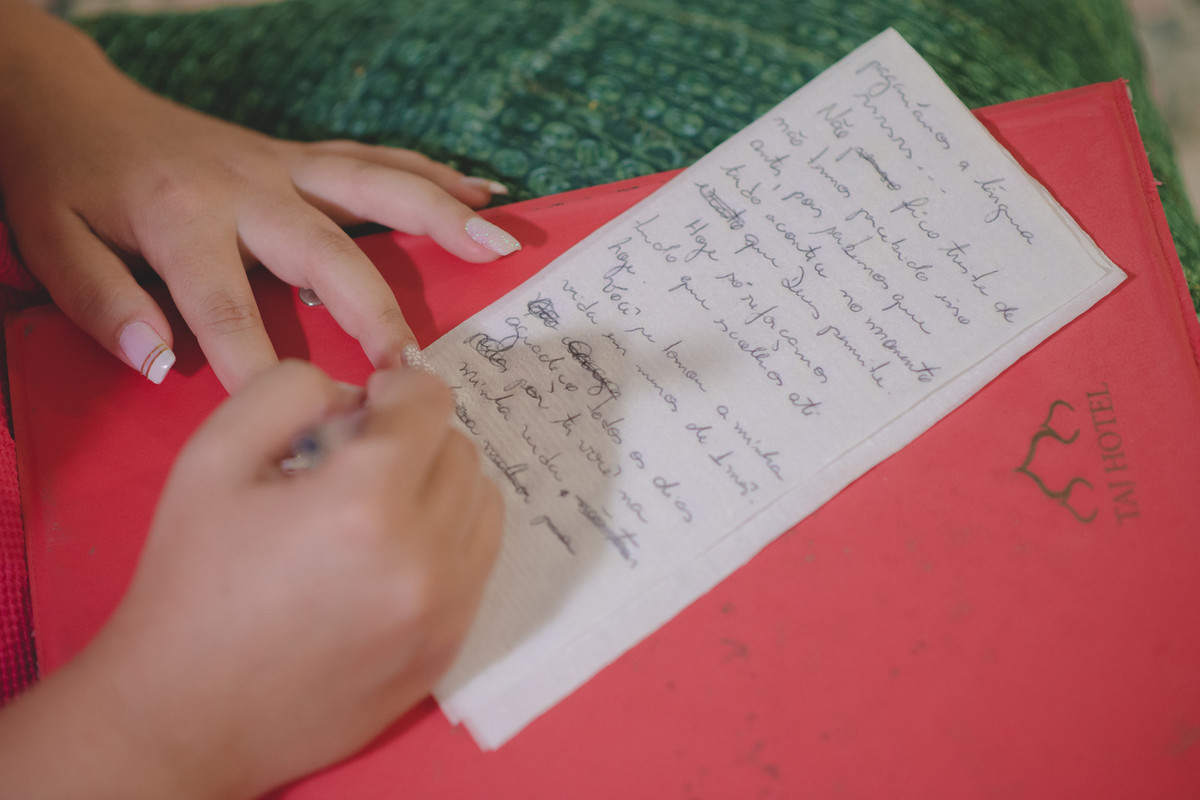 pegaríamos a língua
hrsrsrs...
Não fico triste de
não termos percebido isso
antes, pois sabemos que
tudo acontece no momento
que Deus permite.
Hoje só reforçamos
tudo que escolhemos até
hoje.
Você me tomou a minha
vida em menos de 1 mês?
agradeço todos os dias
por ter você na
minha vida,
TAJ HOTEL